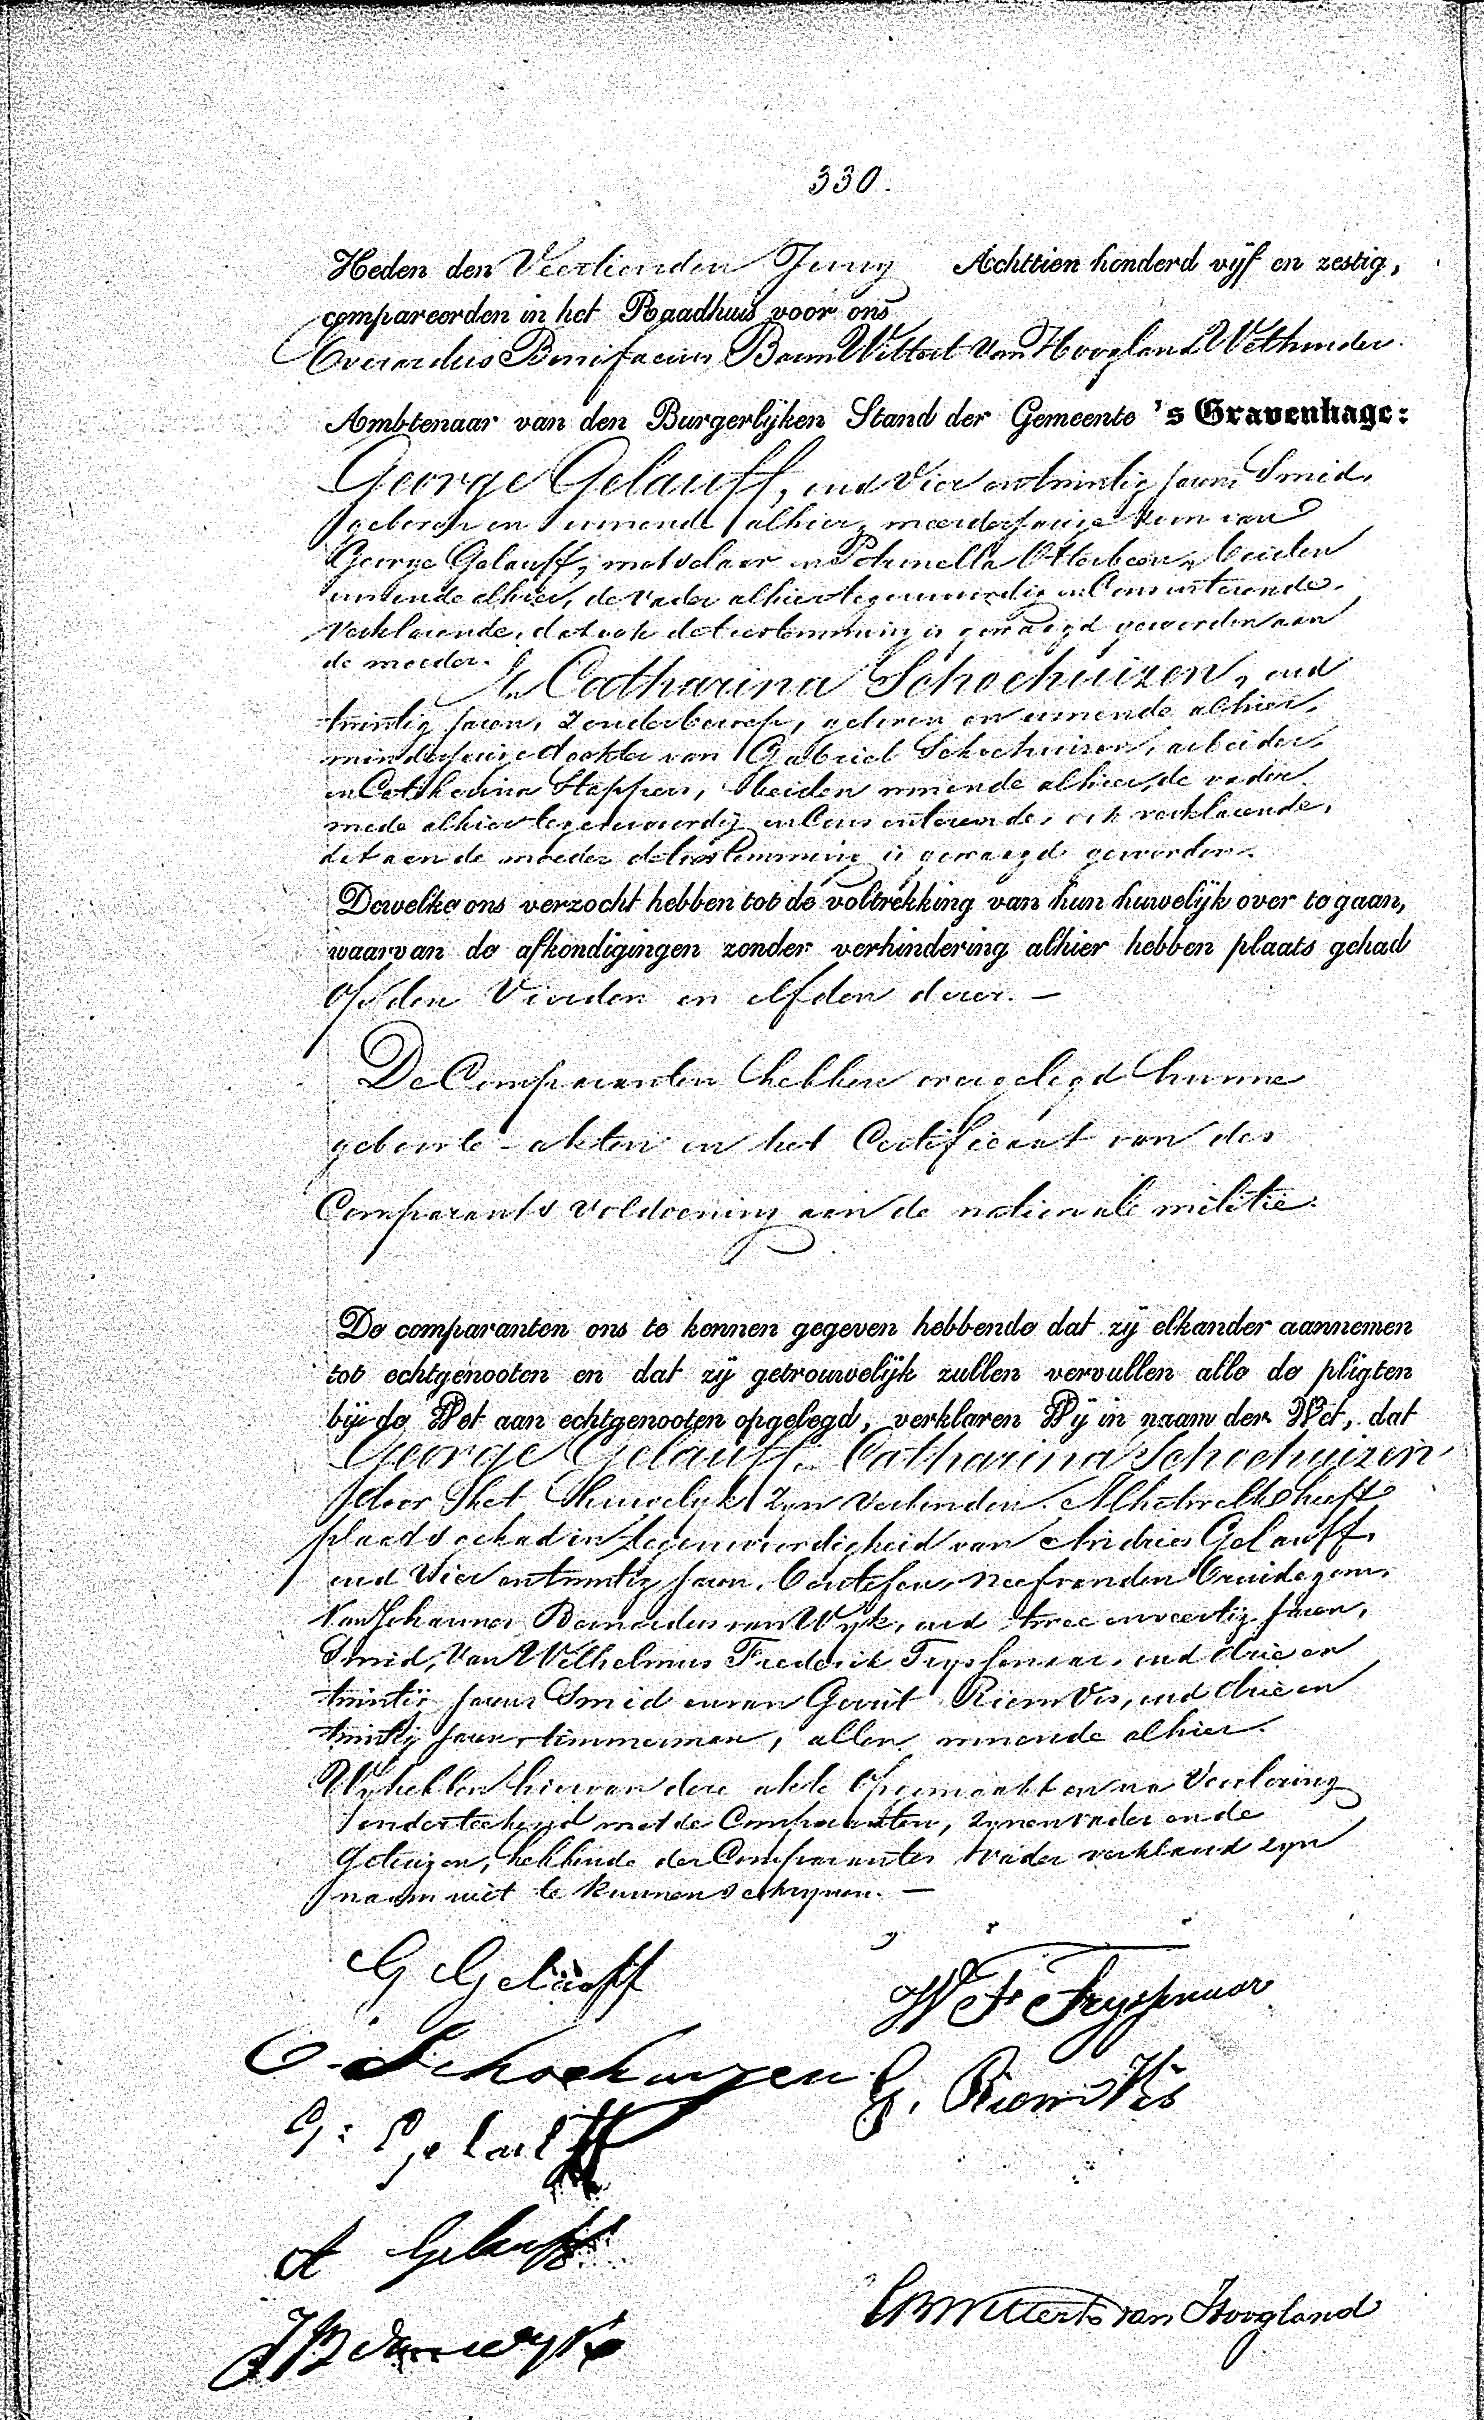 330.
Heden den Veertienden Juny Achttien honderd vijf en zestig,
compareerden in het Raadhuis voor ons
Everardus Bonifacius Baron Wittert van Hoogland Wethouder
Ambtenaar van den Burgerlijken Stand der Gemeente 's Gravenhage:
George Gelauff, oud Vier entwintig jaren, Smid,
geboren en wonende alhier, meerderjarige zoon van
George Gelauff, metselaar en Petronella Otterbeen, beiden
wonende alhier, de vader alhier tegenwoordig en Consenterende,
verklarende, dat ook de toestemming is gevraagd geworden aan
de moeder.
En Catharina Schoehuizen, oud
twintig jaren, zonder beroep, geboren en wonende alhier,
minderjarige dochter van Gabriel Schoehuizen, arbeider,
en Catharina Steppen, beiden wonende alhier, de vader
mede alhier tegenwoordig en Consenterende, ook verklarende,
dat aan de moeder de toestemming is gevraagd geworden.
Dewelke ons verzocht hebben tot de voltrekking van hun huwelijk over te gaan,
waarvan de afkondigingen zonder verhindering alhier hebben plaats gehad
op den Vierden en elfden dezer. —
De Comparanten hebben overgelegd hunne
geboorte-akten en het Certificaat van des
Comparants voldoening aan de nationale militie.
De comparanten ons te kennen gegeven hebbende dat zij elkander aannemen
tot echtgenooten en dat zij getrouwelijk zullen vervullen alle de pligten
bij de Wet aan echtgenooten opgelegd, verklaren Wij in naam der Wet, dat
George Gelauff en Catharina Schoehuizen
door het Huwelijk zijn verbonden. Al hetwelk heeft
plaats gehad in tegenwoordigheid van Andries Gelauff,
oud Vier entwintig jaren, neef van den bruidegom,
Van Johannes Bernardus van Wijk, oud twee en veertig jaren,
Smid, Van Wilhelmus Frederik Frijssenaar, oud drie en
twintig jaren Smid en van Gerrit Riem Vis, oud drie en
twintig jaren timmerman, allen wonende alhier.
Wij hebben hiervan deze akte opgemaakt en na Voorlezing
onderteekend met de Comparanten, zijnen vader en de
getuigen, hebbende der Comparante vader verklaard zijn
naam niet te kunnen schrijven. —
G Gelauff
W F Fryssenaar
C. Schoehuizen
G. Riem Vis
G: Gelauff
A Gelauff
EBWittert van Hoogland
JB van Wijk